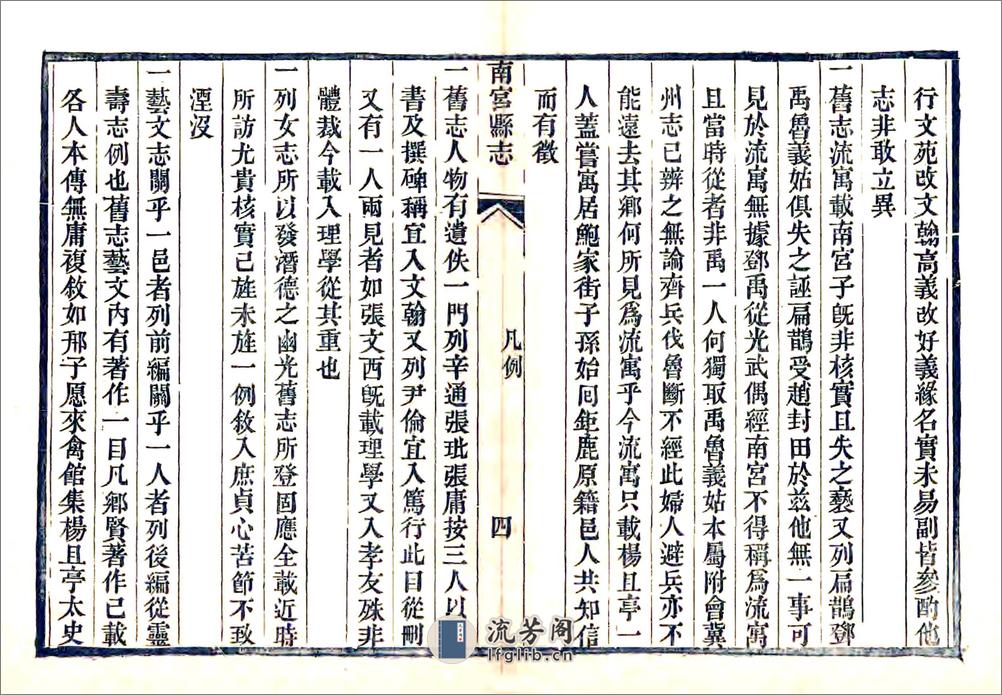 行文苑改文翰高義改好義緣名實未易副皆參酌他
志非敢立異
一舊志流寓載南宮子旣非核實且失之褻又列扁鵲鄧
禹魯義姑俱失之誣扁鵲受趙封田於兹他無一事可
見於流寓無據鄧禹從光武偶經南宮不得稱爲流寓
且當時從者非禹一人何獨取禹魯義姑本屬附會冀
州志已辨之無論齊兵伐魯斷不經此婦人避兵亦不
能遠去其鄉何所見爲流寓乎今流寓只載楊且亭一
人蓋嘗寓居鮑家街子孫始囘鉅鹿原籍邑人共知信
而有徵
南宮縣志
凡例
四
一舊志人物有遺佚一門列辛通張玭張庸按三人以
書及撰碑稱宜入文翰又列尹倫宜入篤行此目從刪
又有一人兩見者如張文西旣載理學又入孝友殊非
體裁今載入理學從其重也
一列女志所以發潛德之幽光舊志所登固應全載近時
所訪尤貴核實已旌未旌一例敘入庶貞心苦節不致
湮沒
一藝文志關乎一邑者列前編關乎一人者列後編從靈
壽志例也舊志藝文內有著作一目凡鄉賢著作已載
各人本傳無庸複敘如邢子愿來禽館集楊且亭太史
流芳阁
lfglib.cn